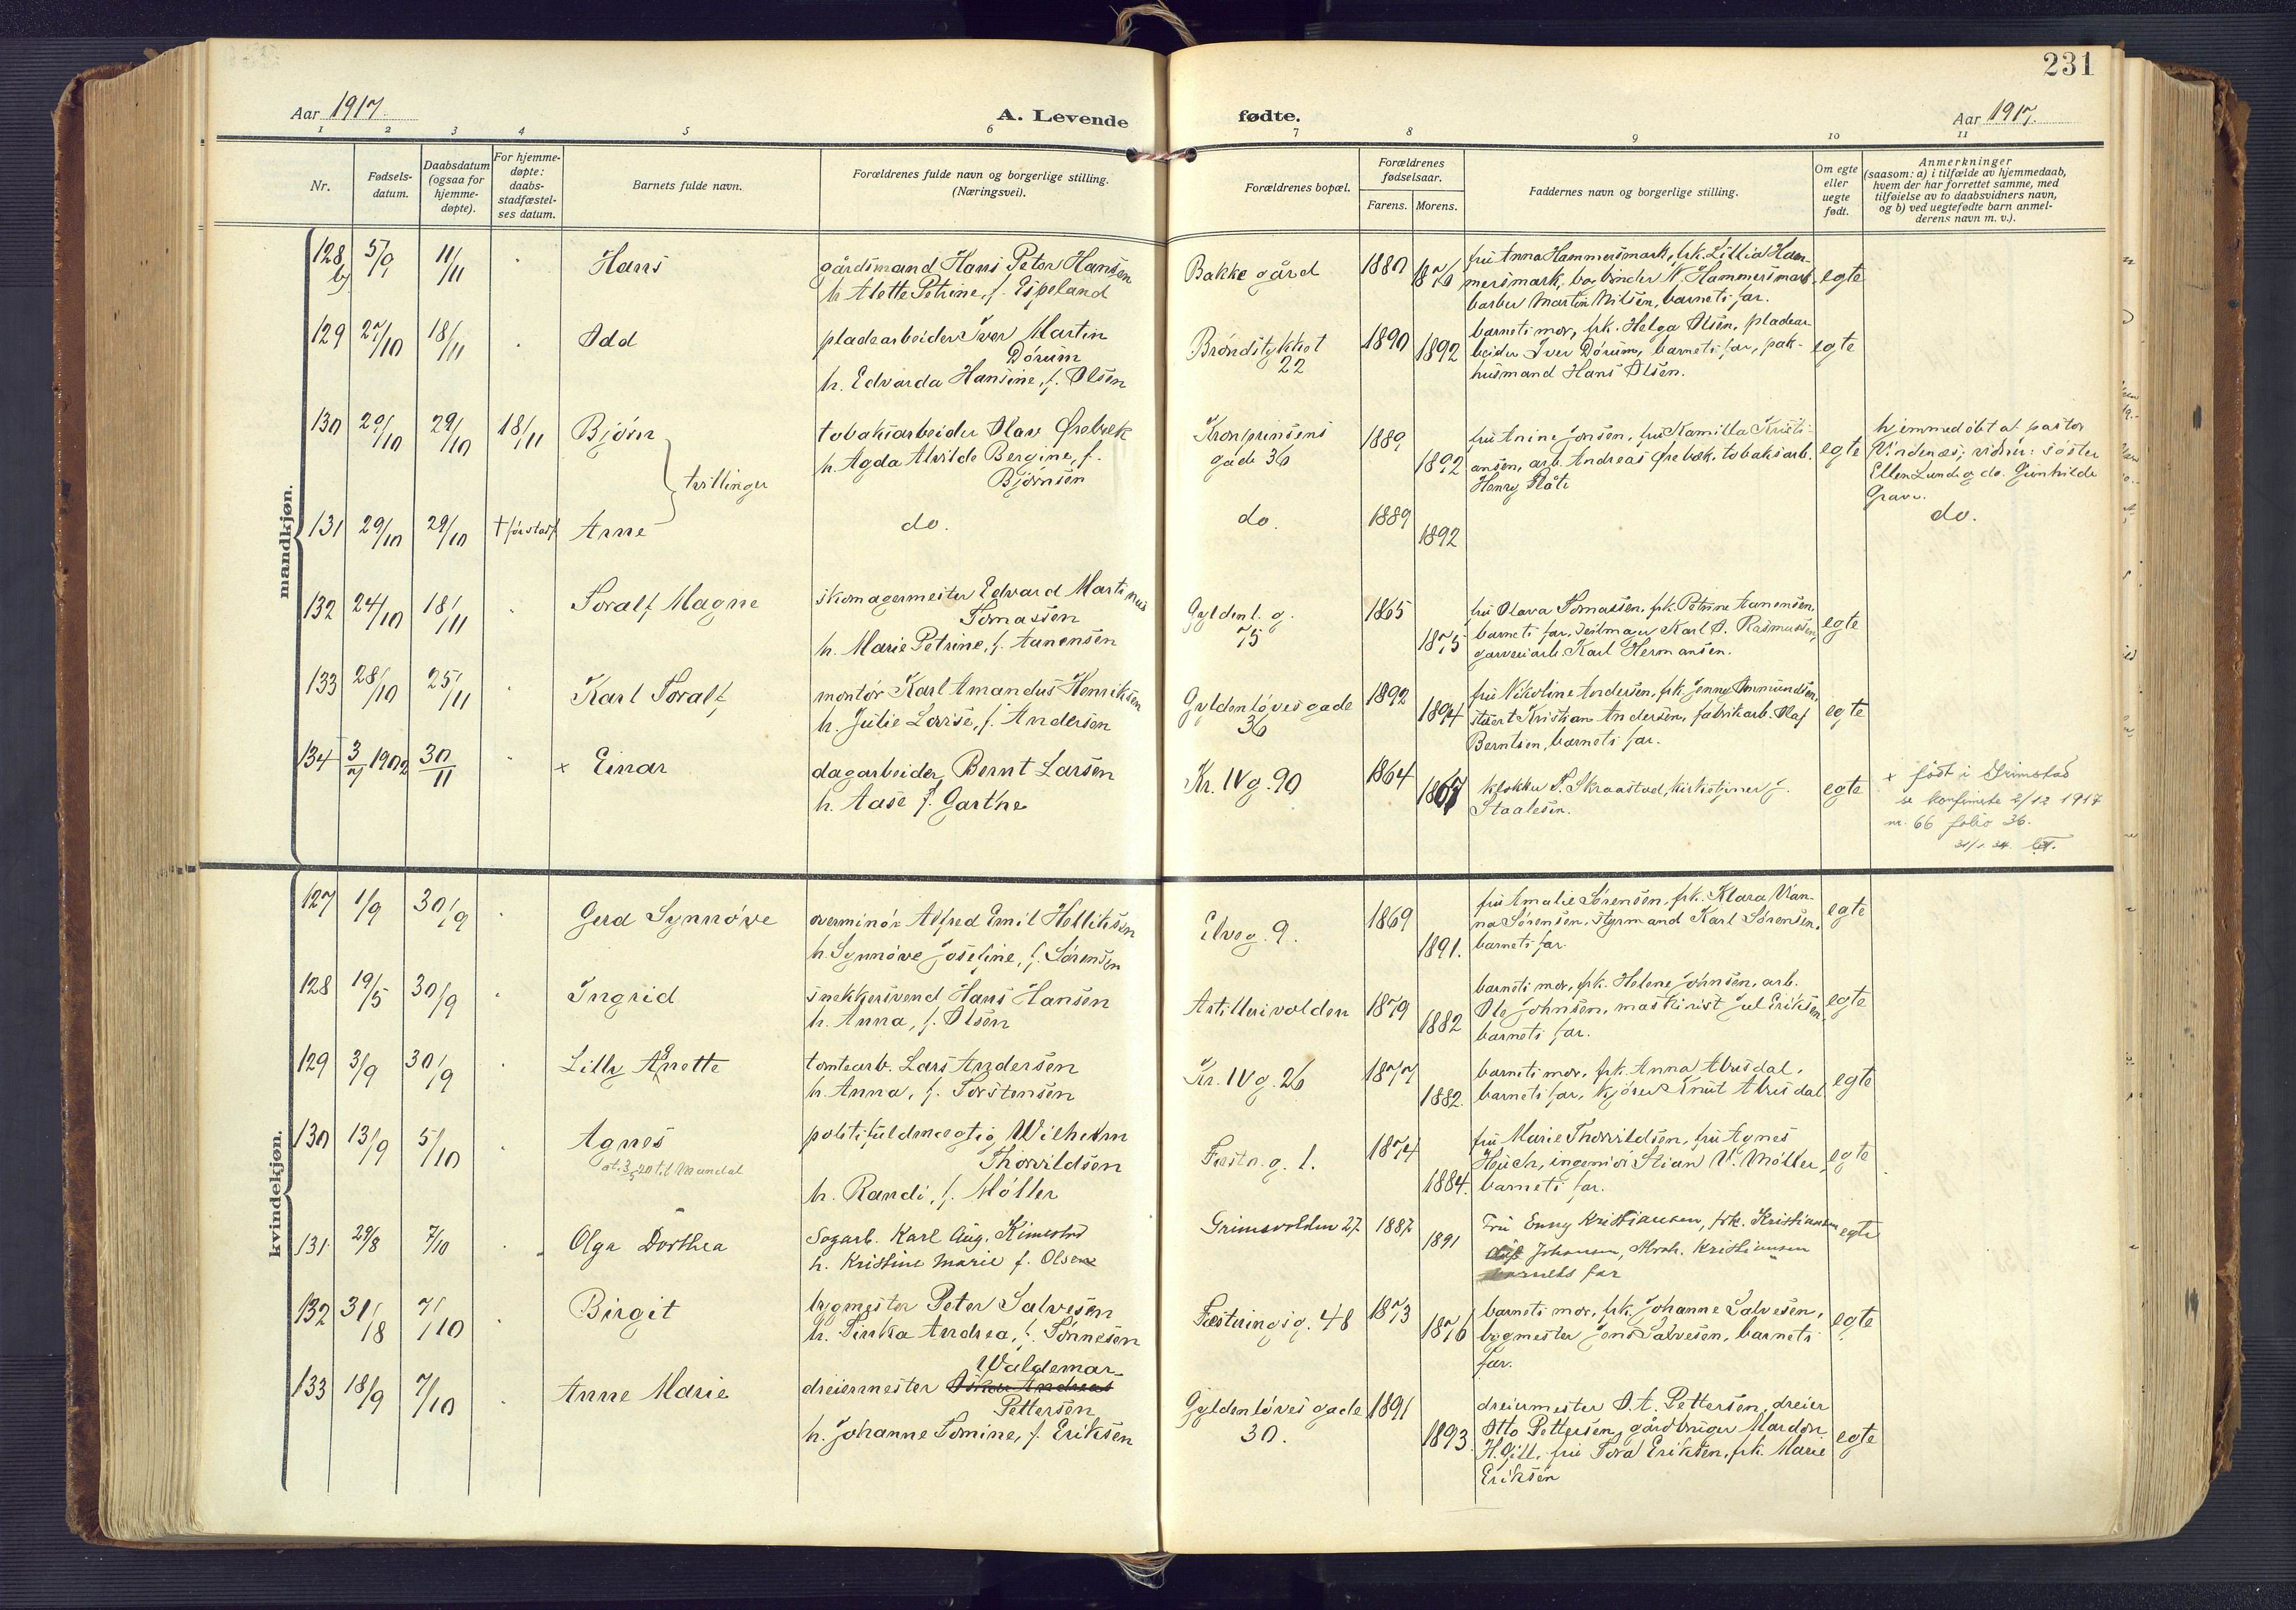 231
Aar 1917. A. Levende fødte. Aar 1917.
1 2 3 4 5 6 7 8 9 10 11
Nr.
Fødsels-
datum.
Daabsdatum
(ogsaa for
hjemme-
døpte).
For hjemme-
døpte:
daabs-
stadfæstel-
ses datum.
Barnets fulde navn.
Forældrenes fulde navn og borgerlige stilling.
(Næringsvei).
Forældrenes bopæl.
Forældrenes
fødselsaar.
Farens. Morens.
Faddernes navn og borgerlige stilling.
Om egte
eller
uegte
født.
Anmerkninger
(saasom: a) i tilfælde av hjemmedaab,
hvem der har forrettet samme, med
tilføielse av to daabsvidners navn,
og b) ved uegtefødte barn anmel-
derens navn m. v.).
mandkjøn.
128 b) 5/9 11/11 Hans
gårdsmand Hans Peter Hansen
h. Alette Petrine, f. Espeland
Bakke gård 1880 1876
fru Anna Hammersmark, frk. Lillia Ham-
mersmark, bogbinder N. Hammersmark,
barber Martin Nilsen, barnets far.
egte
129 27/10 18/11 Odd
pladearbeider Iver Martin
Dørum
h. Edvarda Hansine, f. Olsen
Brøndstykket
22
1890 1892
barnets mor, frk. Helga Olsen, pladear-
beider Iver Dørum, barnets far, pak-
husmand Hans Olsen.
egte
130 29/10 29/10 18/11 Bjørn
tvillinger
tobaksarbeider Olav Ørebek
h. Agda Alvilde Bergine, f.
Bjørnsen
Kronprinsens
gade 36
1889 1892
fru Anine Jonsen, fru Kamilla Kristi-
ansen, arb. Andreas Ørebæk, tobaksarb.
Henry Slåti
egte
hjemmedøbt af pastor
Vindenæs; vidner: søster
Ellen Lund og do. Gunhilde
Grave.
131 29/10 29/10 † før stadf Arne
do. do. 1889 1892 do.
132 24/10 18/11 Toralf Magne
skomagermester Edvard Martinus
Tomassen
h. Marie Petrine, f. Aanensen
Gyldenl. g.
75
1865 1875
fru Olava Tomassen, frk. Petrine Aanensen,
barnets far, seilmager Karl O. Rasmussen,
garveriarb. Karl Hermansen.
egte
133 28/10 25/11 Karl Toralf
montør Karl Amandus Henriksen
h. Julie Lovise, f. Andersen
Gyldenløvesgade
36
1892 1894
fru Nikoline Andersen, frk. Jenny Ommundsen,
stuert Kristian Andersen, fabrikarb. Olaf
Berntsen, barnets far.
egte
134 3/7 1902 30/11 × Einar
dagarbeider Bernt Larsen
h. Aase f. Garthe
Kr. IV g. 90 1864 1867
klokker T. Skraastad, kirketjener J.
Staalesen.
egte
× født i Grimstad
se konfirmerte 2/12 1917
nr. 66 folio 36.
31/1 34.
kvindekjøn.
127 1/9 30/9 Gerd Synnøve
overminør Alfred Emil Helliksen
h. Synnøve Josefine, f. Sørensen
Elveg. 9. 1869 1891.
fru Amalie Sørensen, frk. Klara Nan-
na Sørensen, styrmand Karl Sørensen,
barnets far.
egte
128 19/5 30/9 Ingrid
snekkersvend Hans Hansen
h. Anna, f. Olsen
Artillerivolden 1879 1882
barnets mor, frk. Helene Johnsen, arb.
Ole Johnsen, maskinist Jul Eriksen,
barnets far.
egte
129 3/9 30/9 Lilly Anette
tomtearb. Lars Andersen
h. Anna, f. Torstensen
Kr. IV g. 26 1877 1882.
barnets mor, frk. Anna Abusdal,
barnets far, kjører Knut Abusdal
egte
130 13/9 5/10 Agnes
at. 3/5 20 til Mandal
politifuldmægtig Wilhelm
Thorvildsen
h. Randi, f. Møller
Fæstn. g. 1. 1874 1884.
fru Marie Thorvildsen, fru Agnes
Heuch, ingeniør Stian V. Møller,
barnets far.
egte
131 29/8 7/10 Olga Dorthea
Sagarb. Karl Aug. Kimestad
h. Kristine Marie f. Olsen
Grimsvolden 27. 1887 1891
Fru Enny Kristiansen, frk. Kristiansen
Johansen, Abrah. Kristiansen
barnets far
egte
132 31/8 7/10 Birgit
bygmester Peter Salvesen
h. Tinka Andrea, f. Tønnesen
Fæstningsg. 48 1873 1876
barnets mor, frk. Johanne Salvesen,
bygmester Jens Salvesen, barnets
far.
egte
133 18/9 7/10 Anne Marie
Waldemar
dreiermester Oskar Andreas
Pettersen
h. Johanne Tomine, f. Eriksen
Gyldenløvesgade
30.
1891 1893.
dreiermester O. A. Pettersen, dreier
Otto Pettersen, gårdbruger Mardon
H. Gill, fru Tora Eriksen, frk. Marie
Eriksen
egte